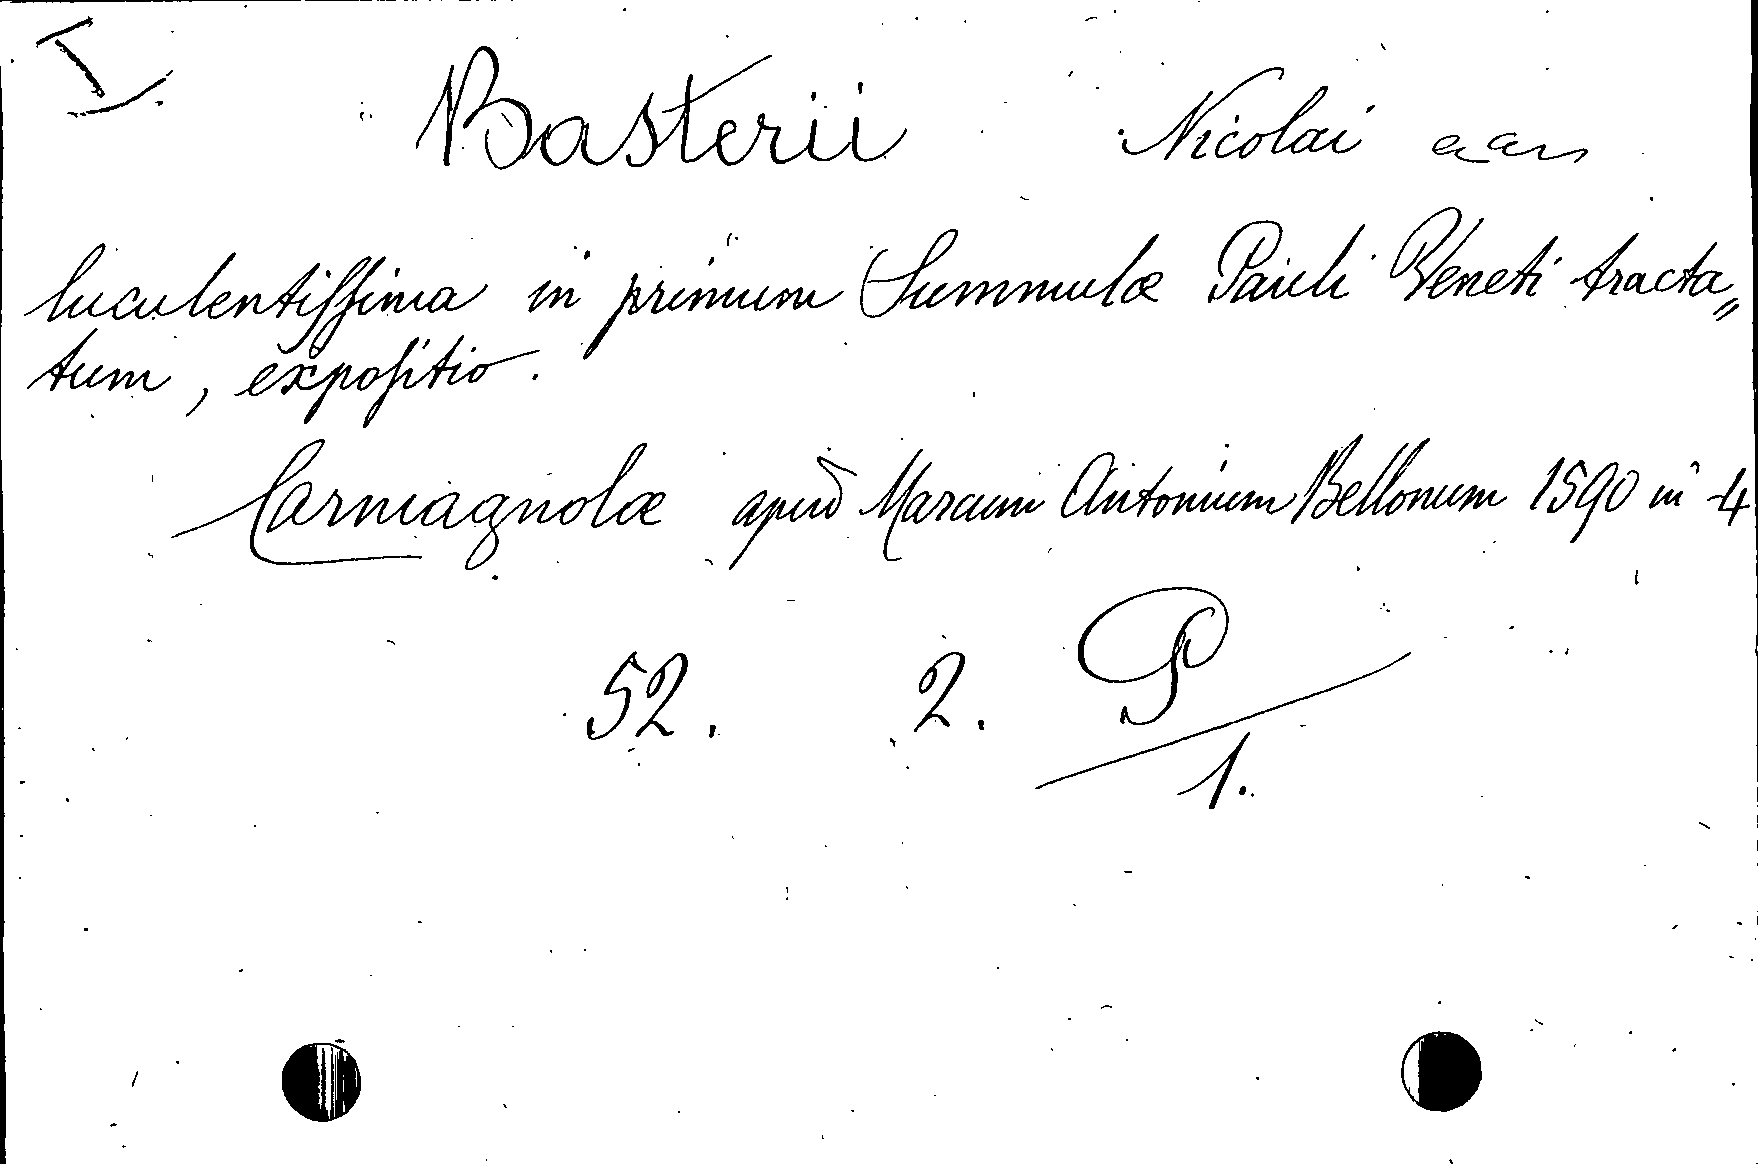 I.
Basterii Nicolai
luculentissima in primum Summulæ Pauli Veneti tracta„
tum, expositio.
Carmagnolæ apud Marcum Antonium Bellonum 1590 in 4
52. 2. P
1.